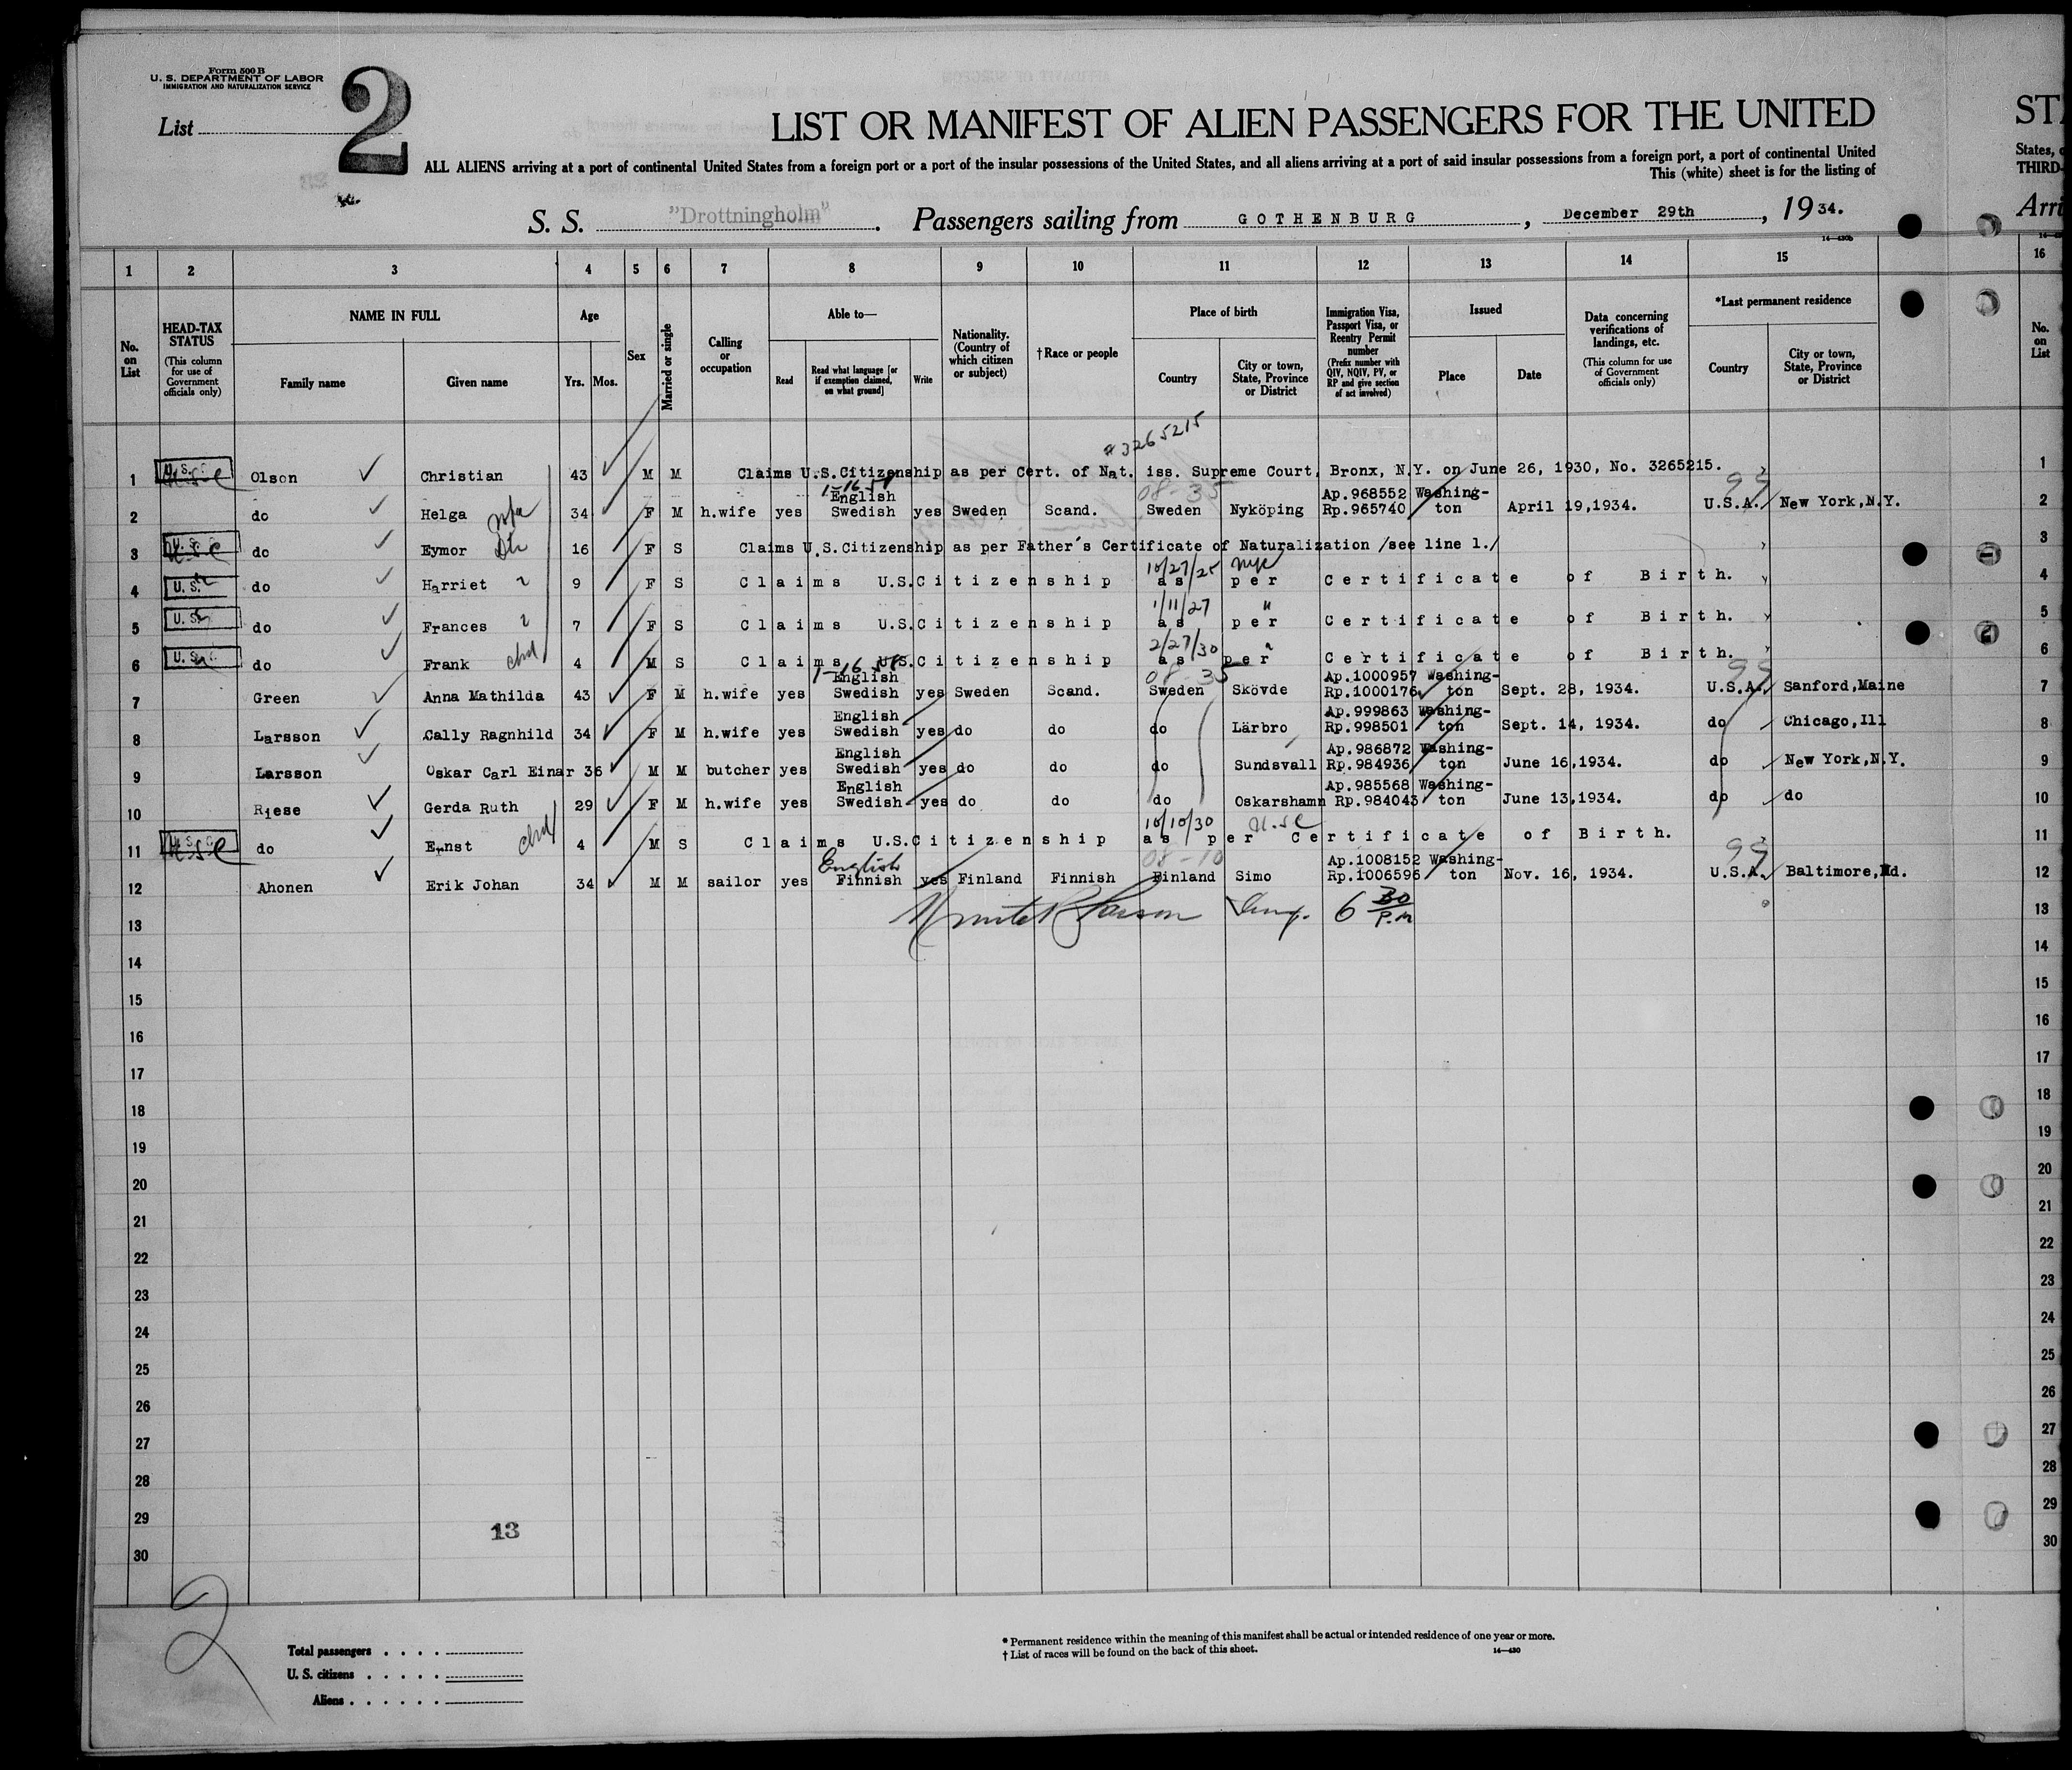 Form 500 B
U. S. DEPARTMENT OF LABOR
IMMIGRATION AND NATURALIZATION SERVICE
List 2
LIST OR MANIFEST OF ALIEN PASSENGERS FOR THE UNITED
ALL ALIENS arriving at a port of continental United States from a foreign port or a port of the insular possessions of the United States, and all aliens arriving at a port of said insular possessions from a foreign port, a port of continental United
This (white) sheet is for the listing of
S. S. "Drottningholm". Passengers sailing from GOTHENBURG, December 29th, 1934.
STA
States, o
THIRD-
Arri
1 2 3 4 5 6 7 8 9 10 11 12 13 14 15 16
No. on List
HEAD-TAX STATUS (This column for use of Government officials only)
NAME IN FULL Family name Given name
Age Yrs. Mos.
Sex
Married or single
Calling or occupation
Able to— Read Read what language [or if exemption claimed, on what ground] Write
Nationality. (Country of which citizen or subject)
†Race or people
Place of birth Country City or town, State, Province or District
Immigration Visa, Passport Visa, or Reentry Permit number (Prefix number with QIV, NQIV, PV, or RP and give section of act involved)
Issued Place Date
Data concerning verifications of landings, etc. (This column for use of Government officials only)
*Last permanent residence Country City or town, State, Province or District
No. on List
#3265215
1 Olson Christian 43 M M Claims U.S.Citizenship as per Cert. of Nat. iss. Supreme Court, Bronx, N.Y. on June 26, 1930, No. 3265215. 1
08-35 99
2 do Helga 34 F M h.wife yes English Swedish yes Sweden Scand. Sweden Nyköping Ap.968552 Rp.965740 Washington April 19,1934. U.S.A. New York,N.Y. 2
3 do Eymor 16 F S Claims U.S.Citizenship as per Father's Certificate of Naturalization /see line 1./ 3
10/27/25 nyc
4 U.S. do Harriet 9 F S Claims U.S.Citizenship as per Certificate of Birth. 4
1/11/27 "
5 U.S. do Frances 7 F S Claims U.S.Citizenship as per Certificate of Birth. 5
2/27/30 "
6 U.S. do Frank chd 4 M S Claims U.S.Citizenship as per Certificate of Birth. 6
08-35 99
7 Green Anna Mathilda 43 F M h.wife yes English Swedish yes Sweden Scand. Sweden Skövde Ap.1000957 Rp.1000176 Washington Sept. 28, 1934. U.S.A. Sanford,Maine 7
8 Larsson Cally Ragnhild 34 F M h.wife yes English Swedish yes do do do Lärbro Ap.999863 Rp.998501 Washington Sept. 14, 1934. do Chicago,Ill 8
9 Larsson Oskar Carl Einar 36 M M butcher yes English Swedish yes do do do Sundsvall Ap.986872 Rp.984936 Washington June 16,1934. do New York,N.Y. 9
10 Riese Gerda Ruth 29 F M h.wife yes English Swedish yes do do do Oskarshamn Ap.985568 Rp.984043 Washington June 13,1934. do do 10
10/10/30 U.S.C
11 do Ernst chd 4 M S Claims U.S.Citizenship as per Certificate of Birth. 11
08-10 99
12 Ahonen Erik Johan 34 M M sailor yes English Finnish yes Finland Finnish Finland Simo Ap.1008152 Rp.1006596 Washington Nov. 16, 1934. U.S.A. Baltimore,Md. 12
13 6 30 P.M 13
14 14
15 15
16 16
17 17
18 18
19 19
20 20
21 21
22 22
23 23
24 24
25 25
26 26
27 27
28 28
29 29
13
30 30
2
Total passengers
U. S. citizens
Aliens
* Permanent residence within the meaning of this manifest shall be actual or intended residence of one year or more.
† List of races will be found on the back of this sheet.
14—430